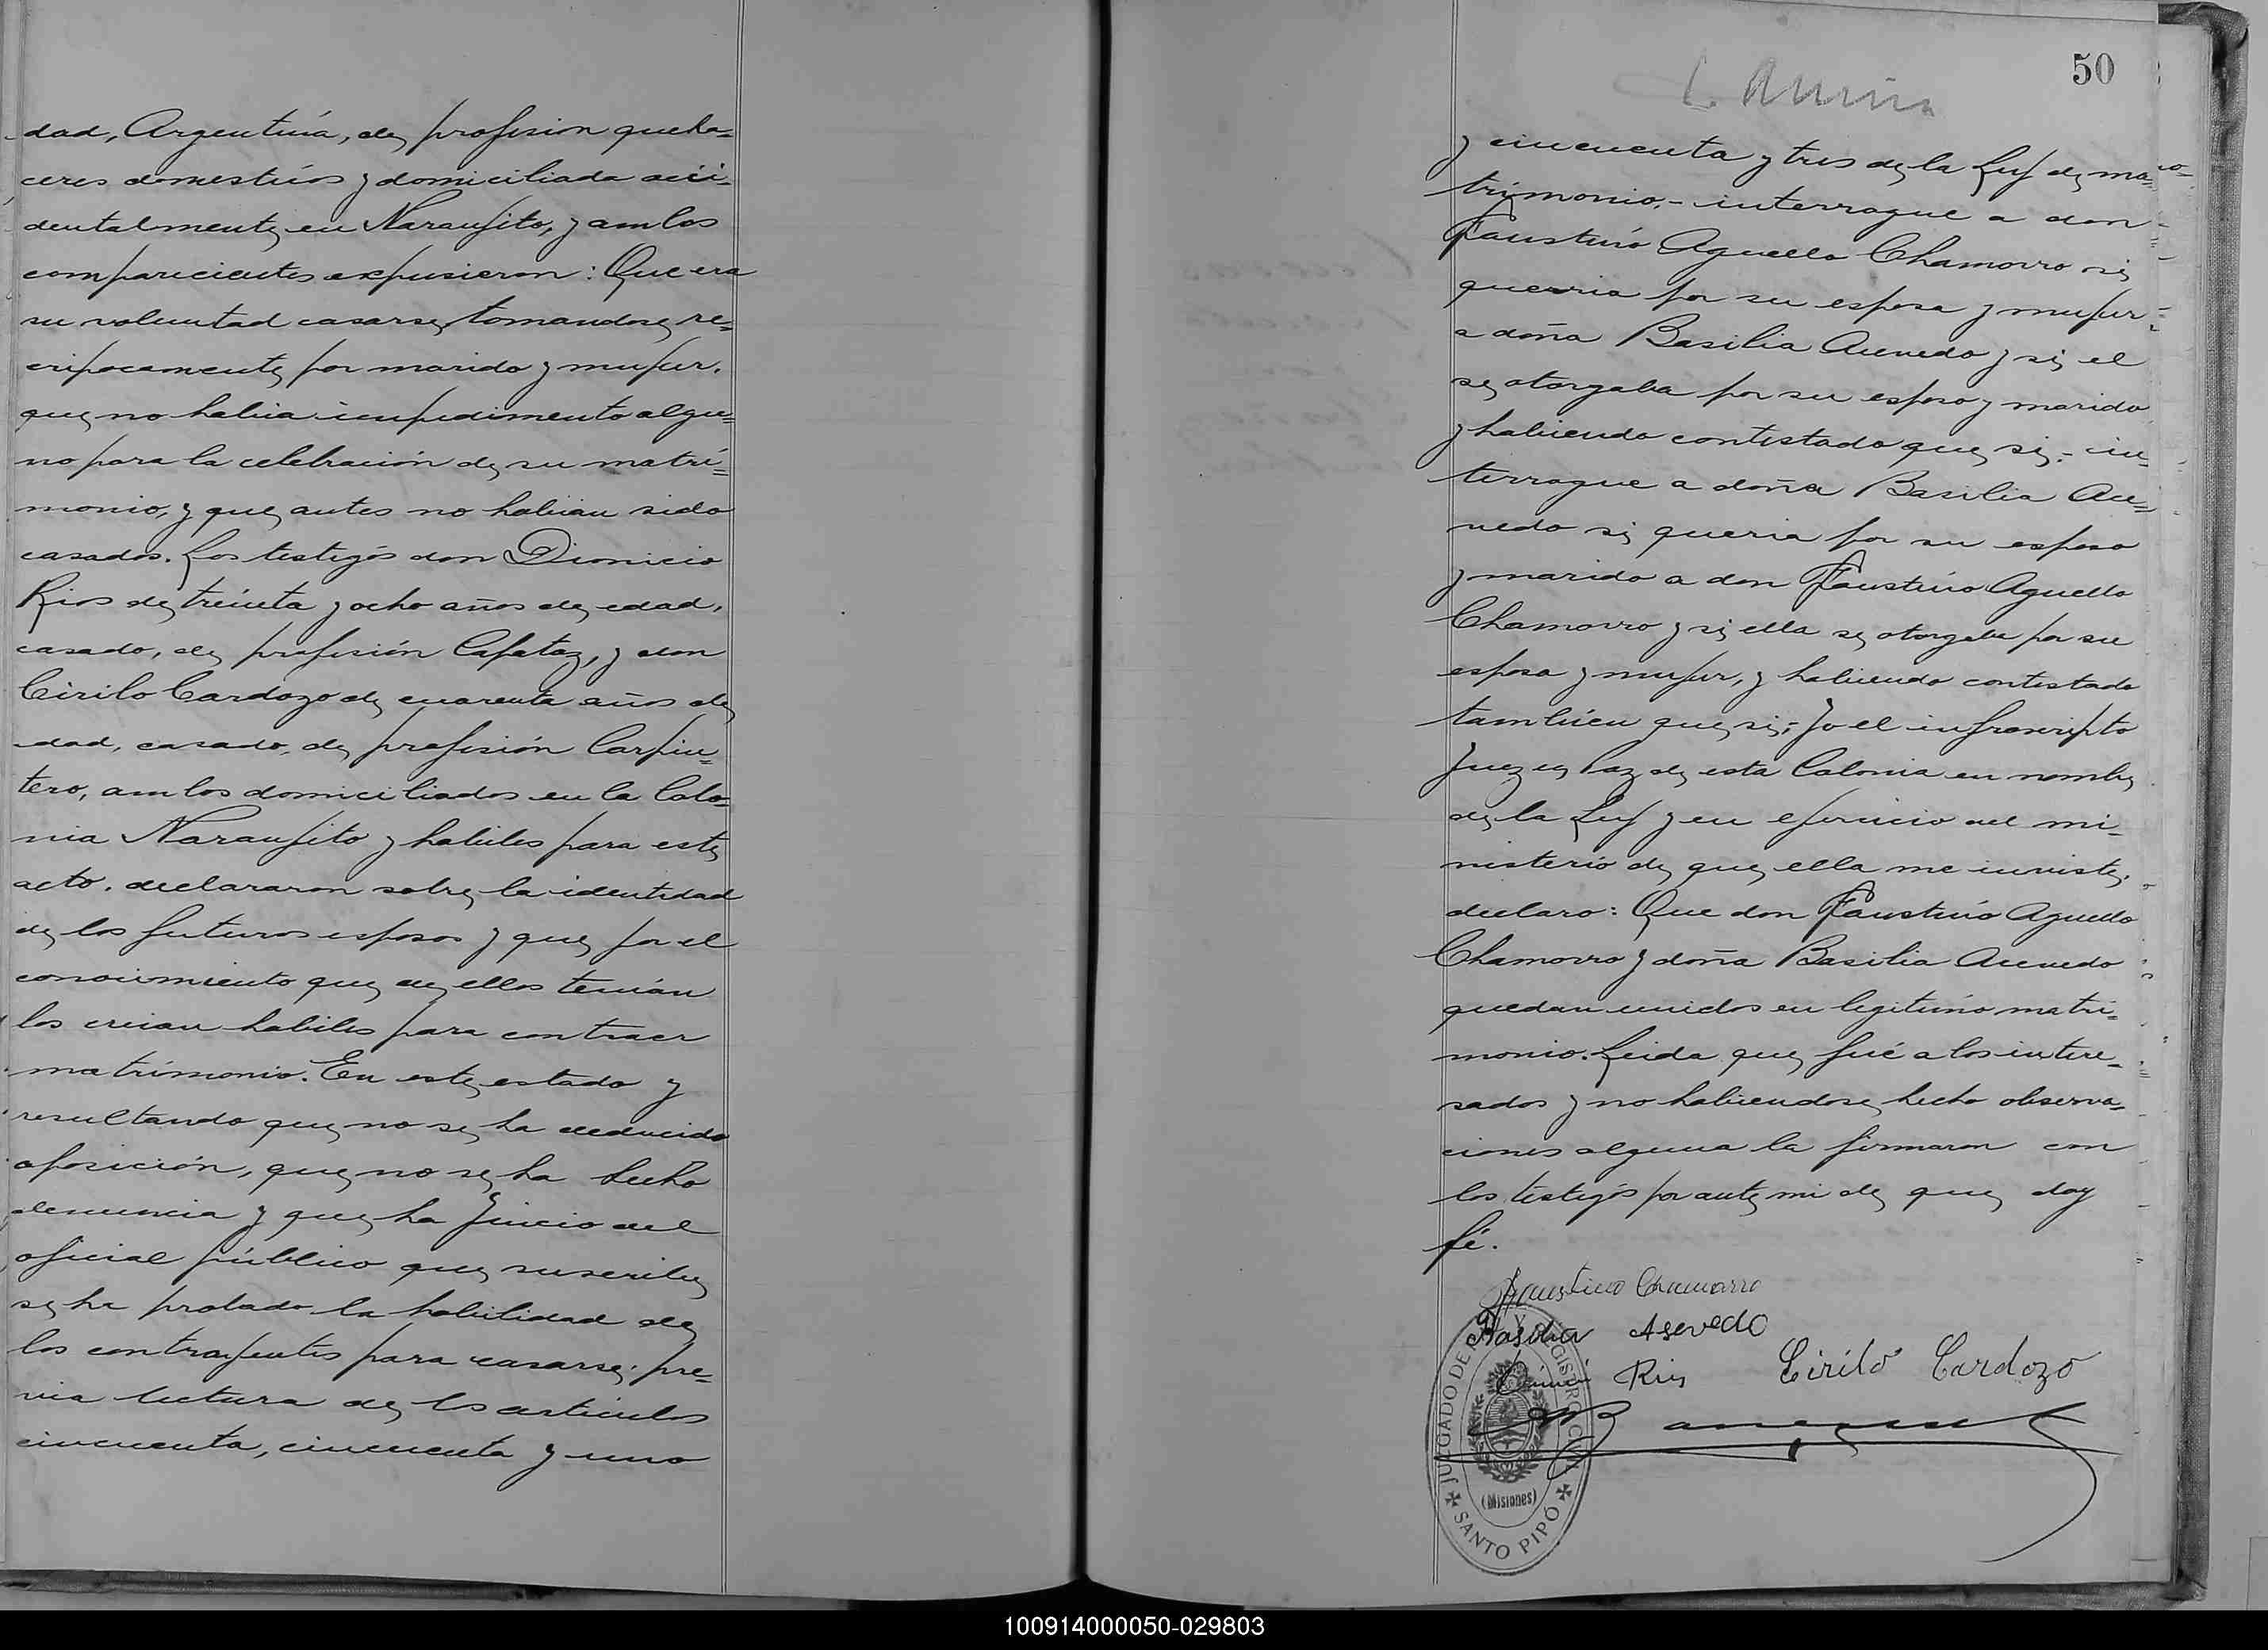 dad, Argentina, de profesion queha=
ceres domesticos y domiciliada acci-
dentalmente en Naranjito, y ambos
comparecientes expusieron: Que era
su voluntad casarse, tomandose re=
cripocamente por marido y mujer,
que no habia impedimento algu=
no para la celebración de su matri=
monio, y que antes no habian sido
casados. Los testigos don Dionicio
Rios de treinta y ocho años de edad,
casado, de profesión Capataz, y don
Cirilo Cardozo de cuarenta años de
edad, casado, de profesión Carpin=
tero, ambos domiciliados en la Colo=
nia Naranjito y habiles para este
acto, declararon sobre la identidad
de los futuros esposos y que por el
conocimiento que de ellos tenian
los creian habiles para contraer
matrimonio. En este estado y
resultando que no se ha deducido
oposición, que no se ha hecho
denuncia y que ha Juicio del
oficial público que suscribe
se ha probado la habilidad de
los contrayentes para casarse, pre=
via lectura de los articulos
cincuenta, cincuenta y uno
50
y cincuenta y tres de la Ley de ma=
trimonio,- interrogue a don
Faustino Aguello Chamorro si
querria por su esposa y mujer
a doña Basilia Acevedo y si el
se otorgaba por su esposo y marido
y habiendo contestado que si,- in=
terrogue a doña Basilia Ace=
vedo si queria por su esposo
y marido a don Faustino Aguello
Chamorro y si ella se otorgaba por su
esposa y mujer, y habiendo contestado
tambien que si;- Yo el infrascripto
Juez de Paz de esta Colonia en nombre
de la Ley y en ejercicio del mi-
nisterio de que ella me inviste,
declaro: Que don Faustino Aguello
Chamorro y doña Basilia Acevedo
quedan unidos en legitimo matri=
monio. Leida que fué a los intere=
sados y no habiendose hecho observa=
ciones alguna la firmaron con
los testigos por ante mi de que doy
fé.
Faustino Chamorro
Basilia Asevedo
Rios Cirilo Cardozo
JUZGADO DE PAZ Y REGISTRO CIVIL
(Misiones)
SANTO PIPÓ
100914000050-029803